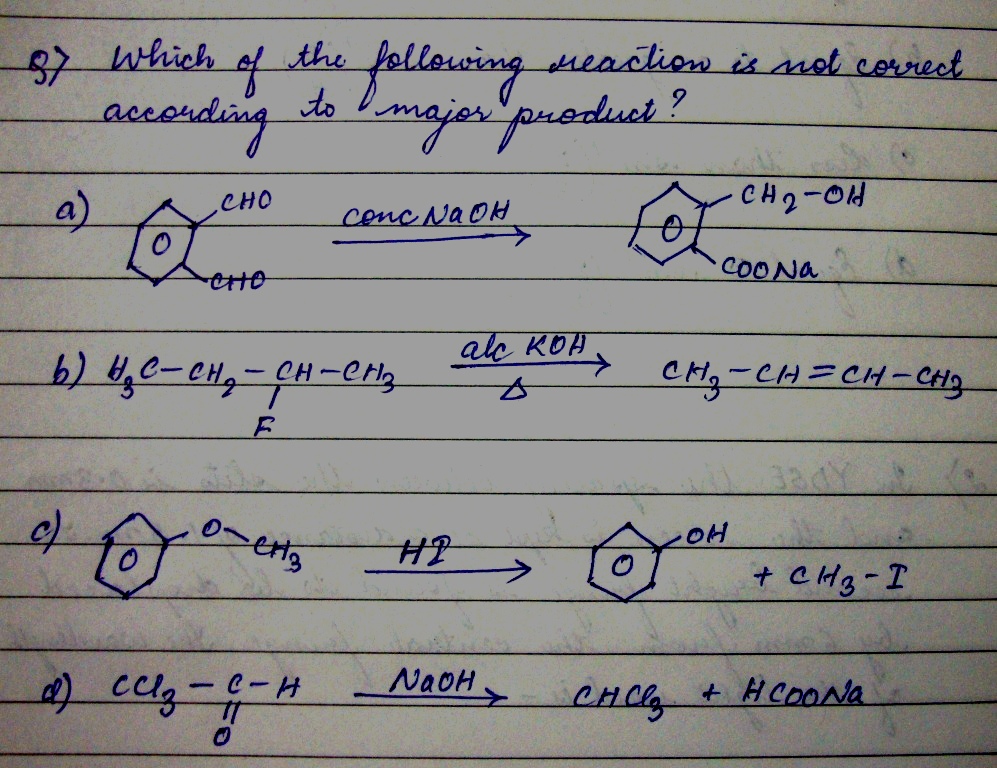 Q> Which of the following reaction is not correct
according to major product?
a) CHO CHO conc NaOH CH2-OH COONa
b) H3C-CH2-CH-CH3 alc KOH CH3-CH=CH-CH3
F Δ
c) O-CH3 HI OH + CH3-I
d) CCl3-C-H NaOH CHCl3 + HCOONa
O